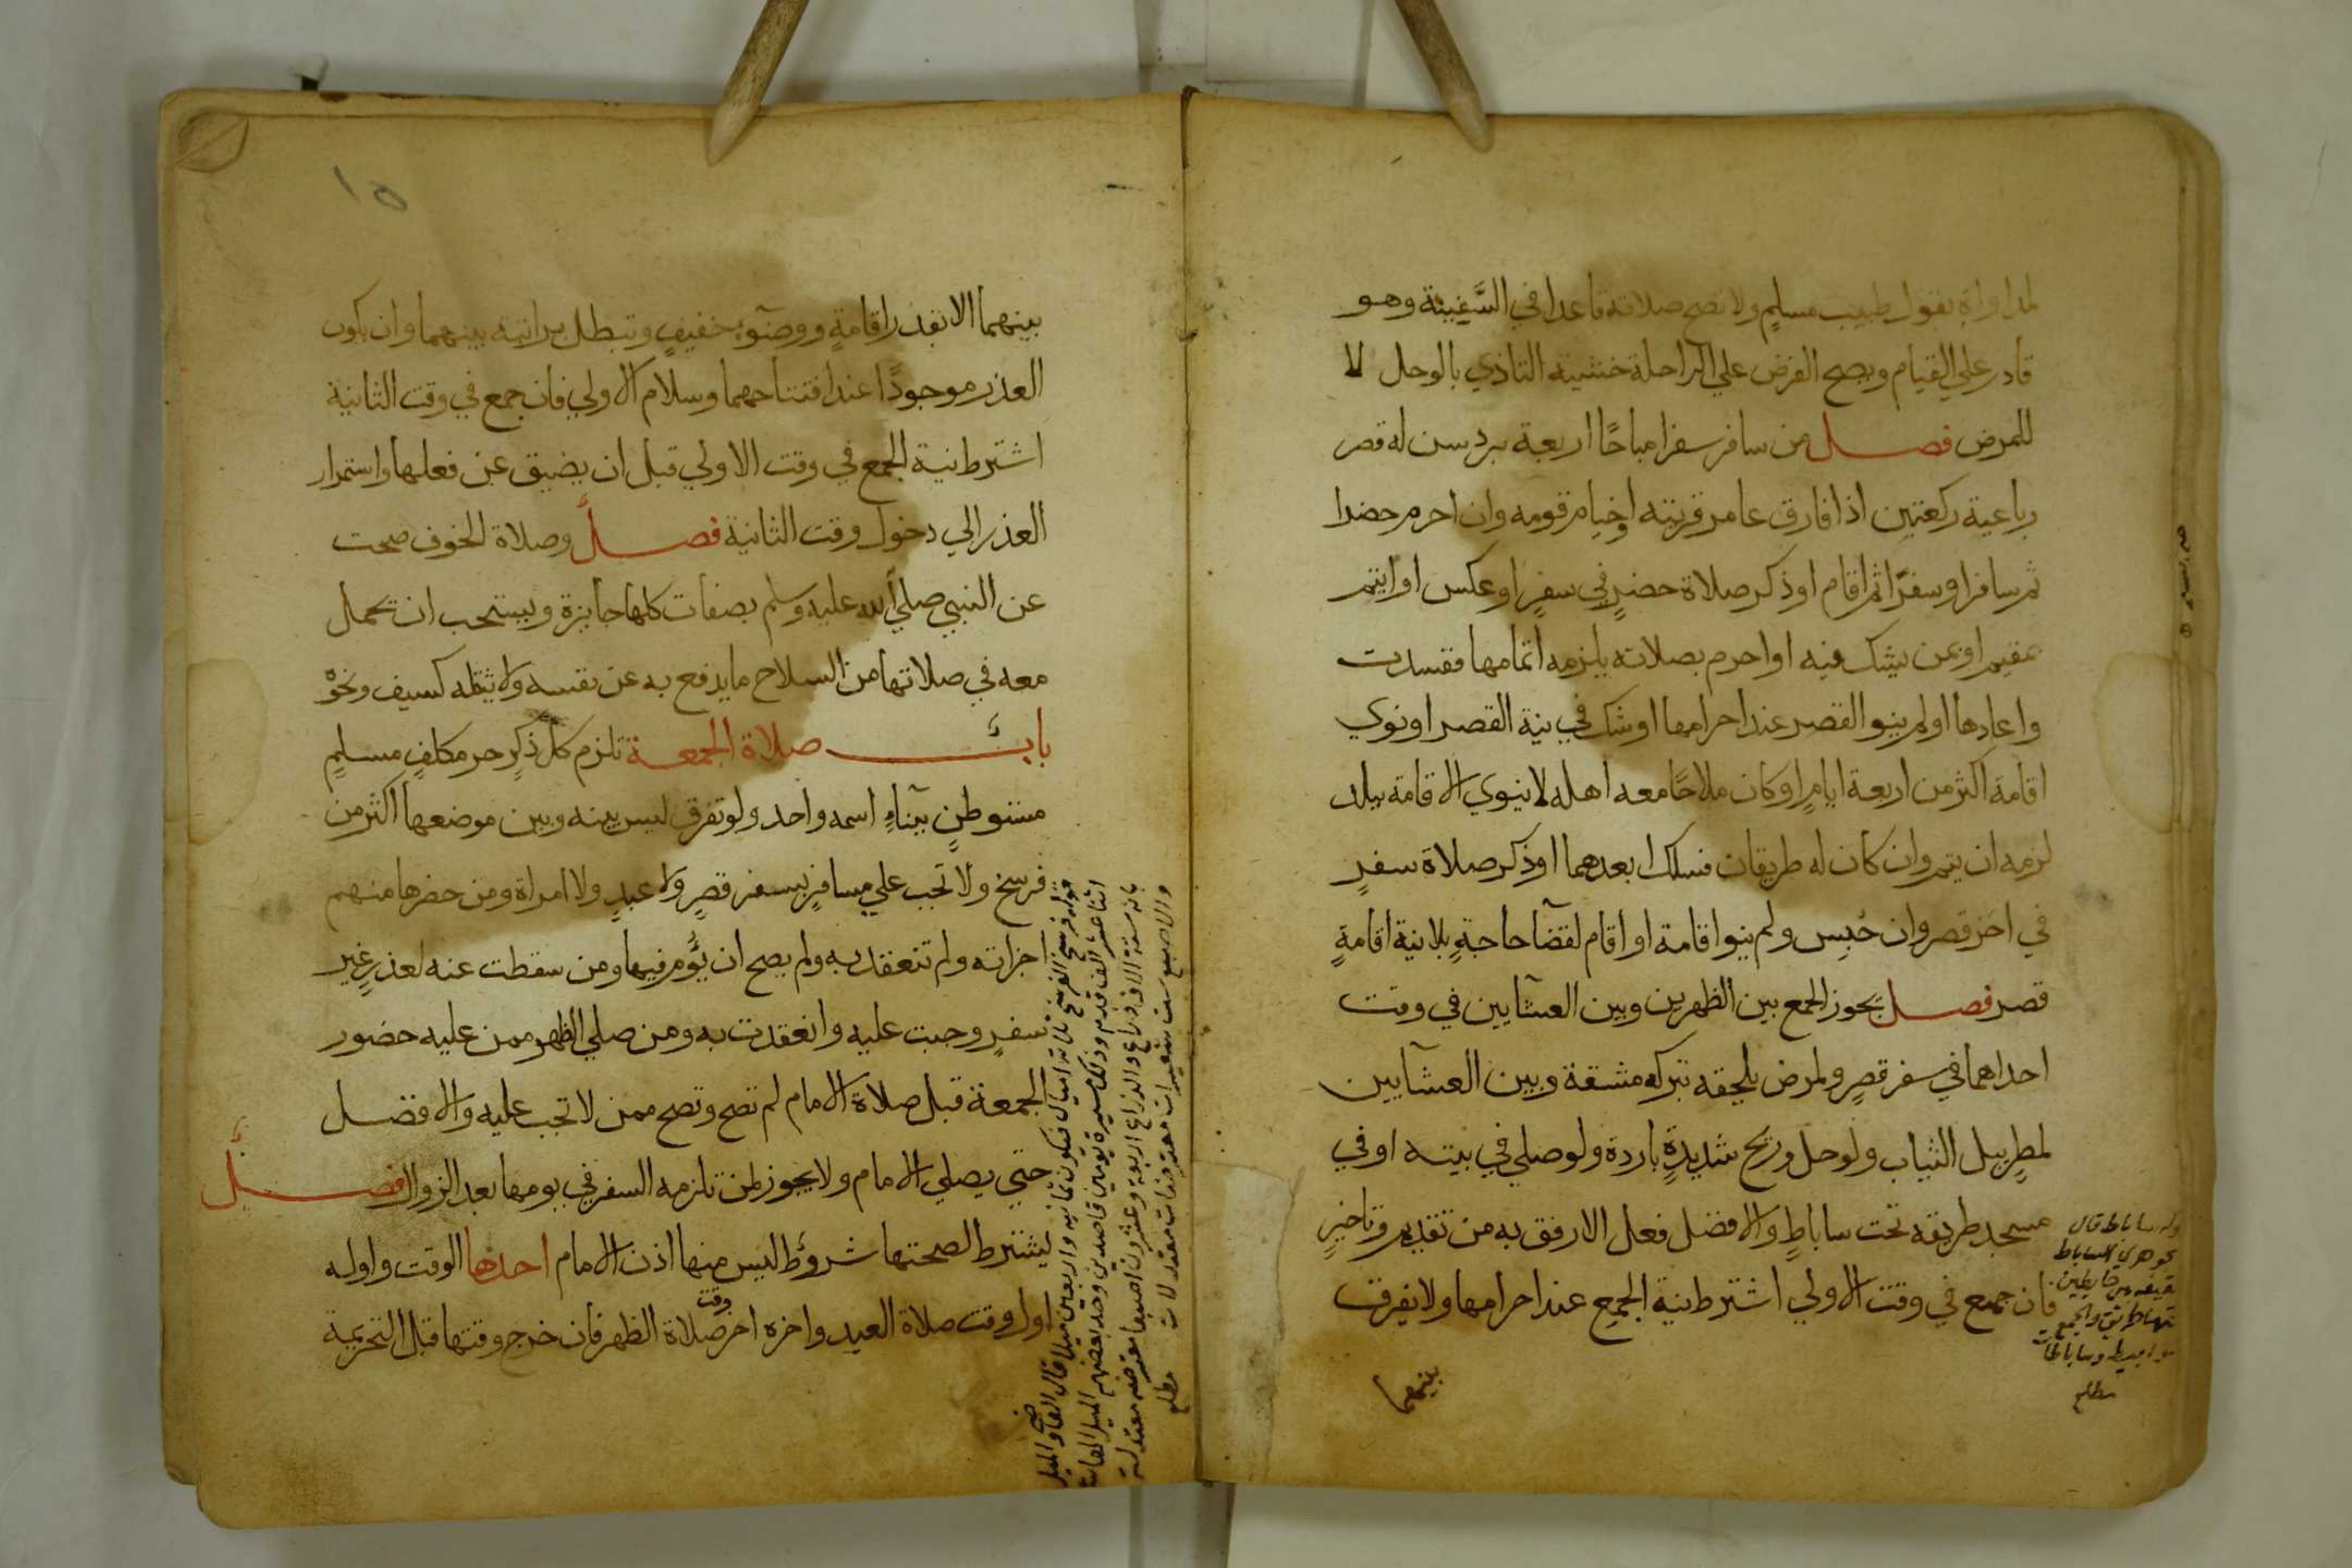 لمداواة بقول طبيب مسلم ولا تصح صلاته قاعدا في السَّفينة وهو
قادر علي القيام ويصح الفرض علي الراحلة خشية التاذي بالوحل لا
للمرض فصل من سافر سفرا مباحًا اربعة برد سن له قصر
رباعية ركعتين اذا فارق عامر قريته او خيام قومه وان احرم حضرا
ثم سافر او سفرًا ثم اقام او ذكر صلاة حضرٍ في سفرٍ او عكس او ايتم
بمقيم او بمن يشك فيه او احرم بصلاته يلزمه اتمامها ففسدت
واعادها او لم ينو القصر عند احرامها او شك في نية القصر او نوي
اقامة اكثر من اربعة ايامٍ او كان ملاحًا معه اهله لا ينوي الاقامة ببلد
لزمه ان يتم وان كان له طريقان فسلك ابعدهما او ذكر صلاة سفرٍ
في اخر قصر وان حُبِس ولم ينو اقامة او اقام لقضآ حاجةٍ بلا نية اقامةٍ
قصر فصل يجوز الجمع بين الظهرين وبين العشآيين في وقت
احداهما في سفر قصرٍ ولمرض يلحقه بتركه مشقة وبين العشآيين
لمطرٍ يبل الثياب ولوحل وريح شديدةٍ باردة ولو صلي في بيته او في
مسجد طريقه تحت ساباطٍ والافضل فعل الارفق به من تقديم وتاخيرٍ
فان جمع في وقت الاولي اشترط نية الجمع عند احرامها ولا يفرقت
بينهما
ساباط قال
جوهري الساباط
سقيفة بين حايطين
تحتها طريق والجمع
سوابيط وساباطات
مطلع
١٥
بينهما الا بقدر اقامةٍ ووضوءٍ خفيفٍ وتبطل براتبة بينهما وان يكون
العذر موجودًا عند افتتاحهما وسلام الاولي فان جمع في وقت الثانية
اشترط نية الجمع في وقت الاولي قبل ان يضيق عن فعلها واستمرار
العذر الي دخول وقت الثانية فصل وصلاة الخوف صحت
عن النبي صلي الله عليه وسلم بصفات كلها جايزة ويستحب ان يحمل
معه في صلاتها من السلاح ما يدفع به عن نفسه ولا يثقله كسيف ونحوٌ
باب صلاة الجمعة تلزم كل ذكرٍ حر مكلفٍ مسلمٍ
مستوطنٍ ببنآءٍ اسمه واحد ولو تفرق ليس بينه وبين موضعها اكثر من
فرسخ ولا تجب علي مسافرٍ سفر قصرٍ ولا عبدٍ ولا امراة ومن حضرها منهم
اجزاته ولم تنعقد به ولم يصح ان يؤم فيها ومن سقطت عنه لعذرٍ غير
سفرٍ وجبت عليه وانعقدت به ومن صلي الظهر ممن عليه حضور
الجمعة قبل صلاة الامام لم تصح وتصح ممن لا تجب عليه والافضل
حتي يصلي الامام ولا يجوز لمن تلزمه السفر في يومها بعد الزوال فصل
يشترط لصحتها شروط ليس منها اذن الامام احدها الوقت واوله
اول وقت صلاة العيد واخره اخر وقت صلاة الظهر فان خرج وقتها قبل التحريمة
قوله فرسخ الفرسخ ثلاثة اميال فيكون ثمانية واربعين ميلا قال القاضي والميل
اثنا عشر الف قدم وذلك مسيرة يومين قاصدين وحد بعضهم الميل
بانه ستة الاف ذراع والذراع اربعة وعشرون اصبعا معترضة معتدلة
والاصبع ست شعيرات معترضات معتدلات مطلع